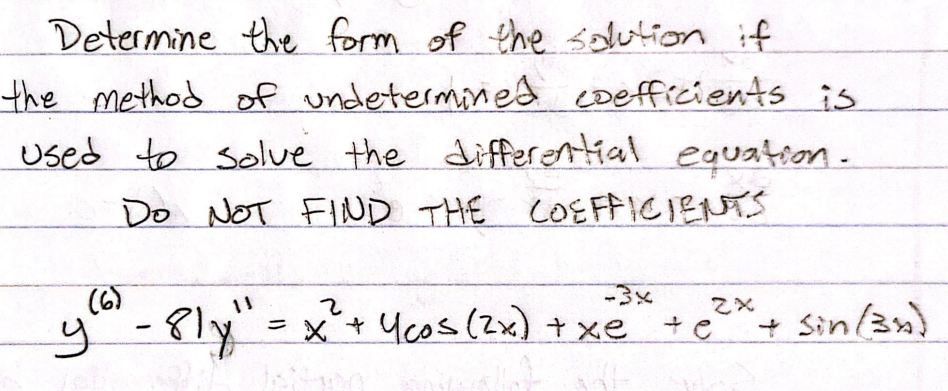 Determine the form of the solution if
the method of undetermined coefficients is
used to solve the differential equation.
DO NOT FIND THE COEFFICIENTS
y⁽⁶⁾ - 81y'' = x² + 4cos(2x) + xe⁻³ˣ + e²ˣ + sin(3x)